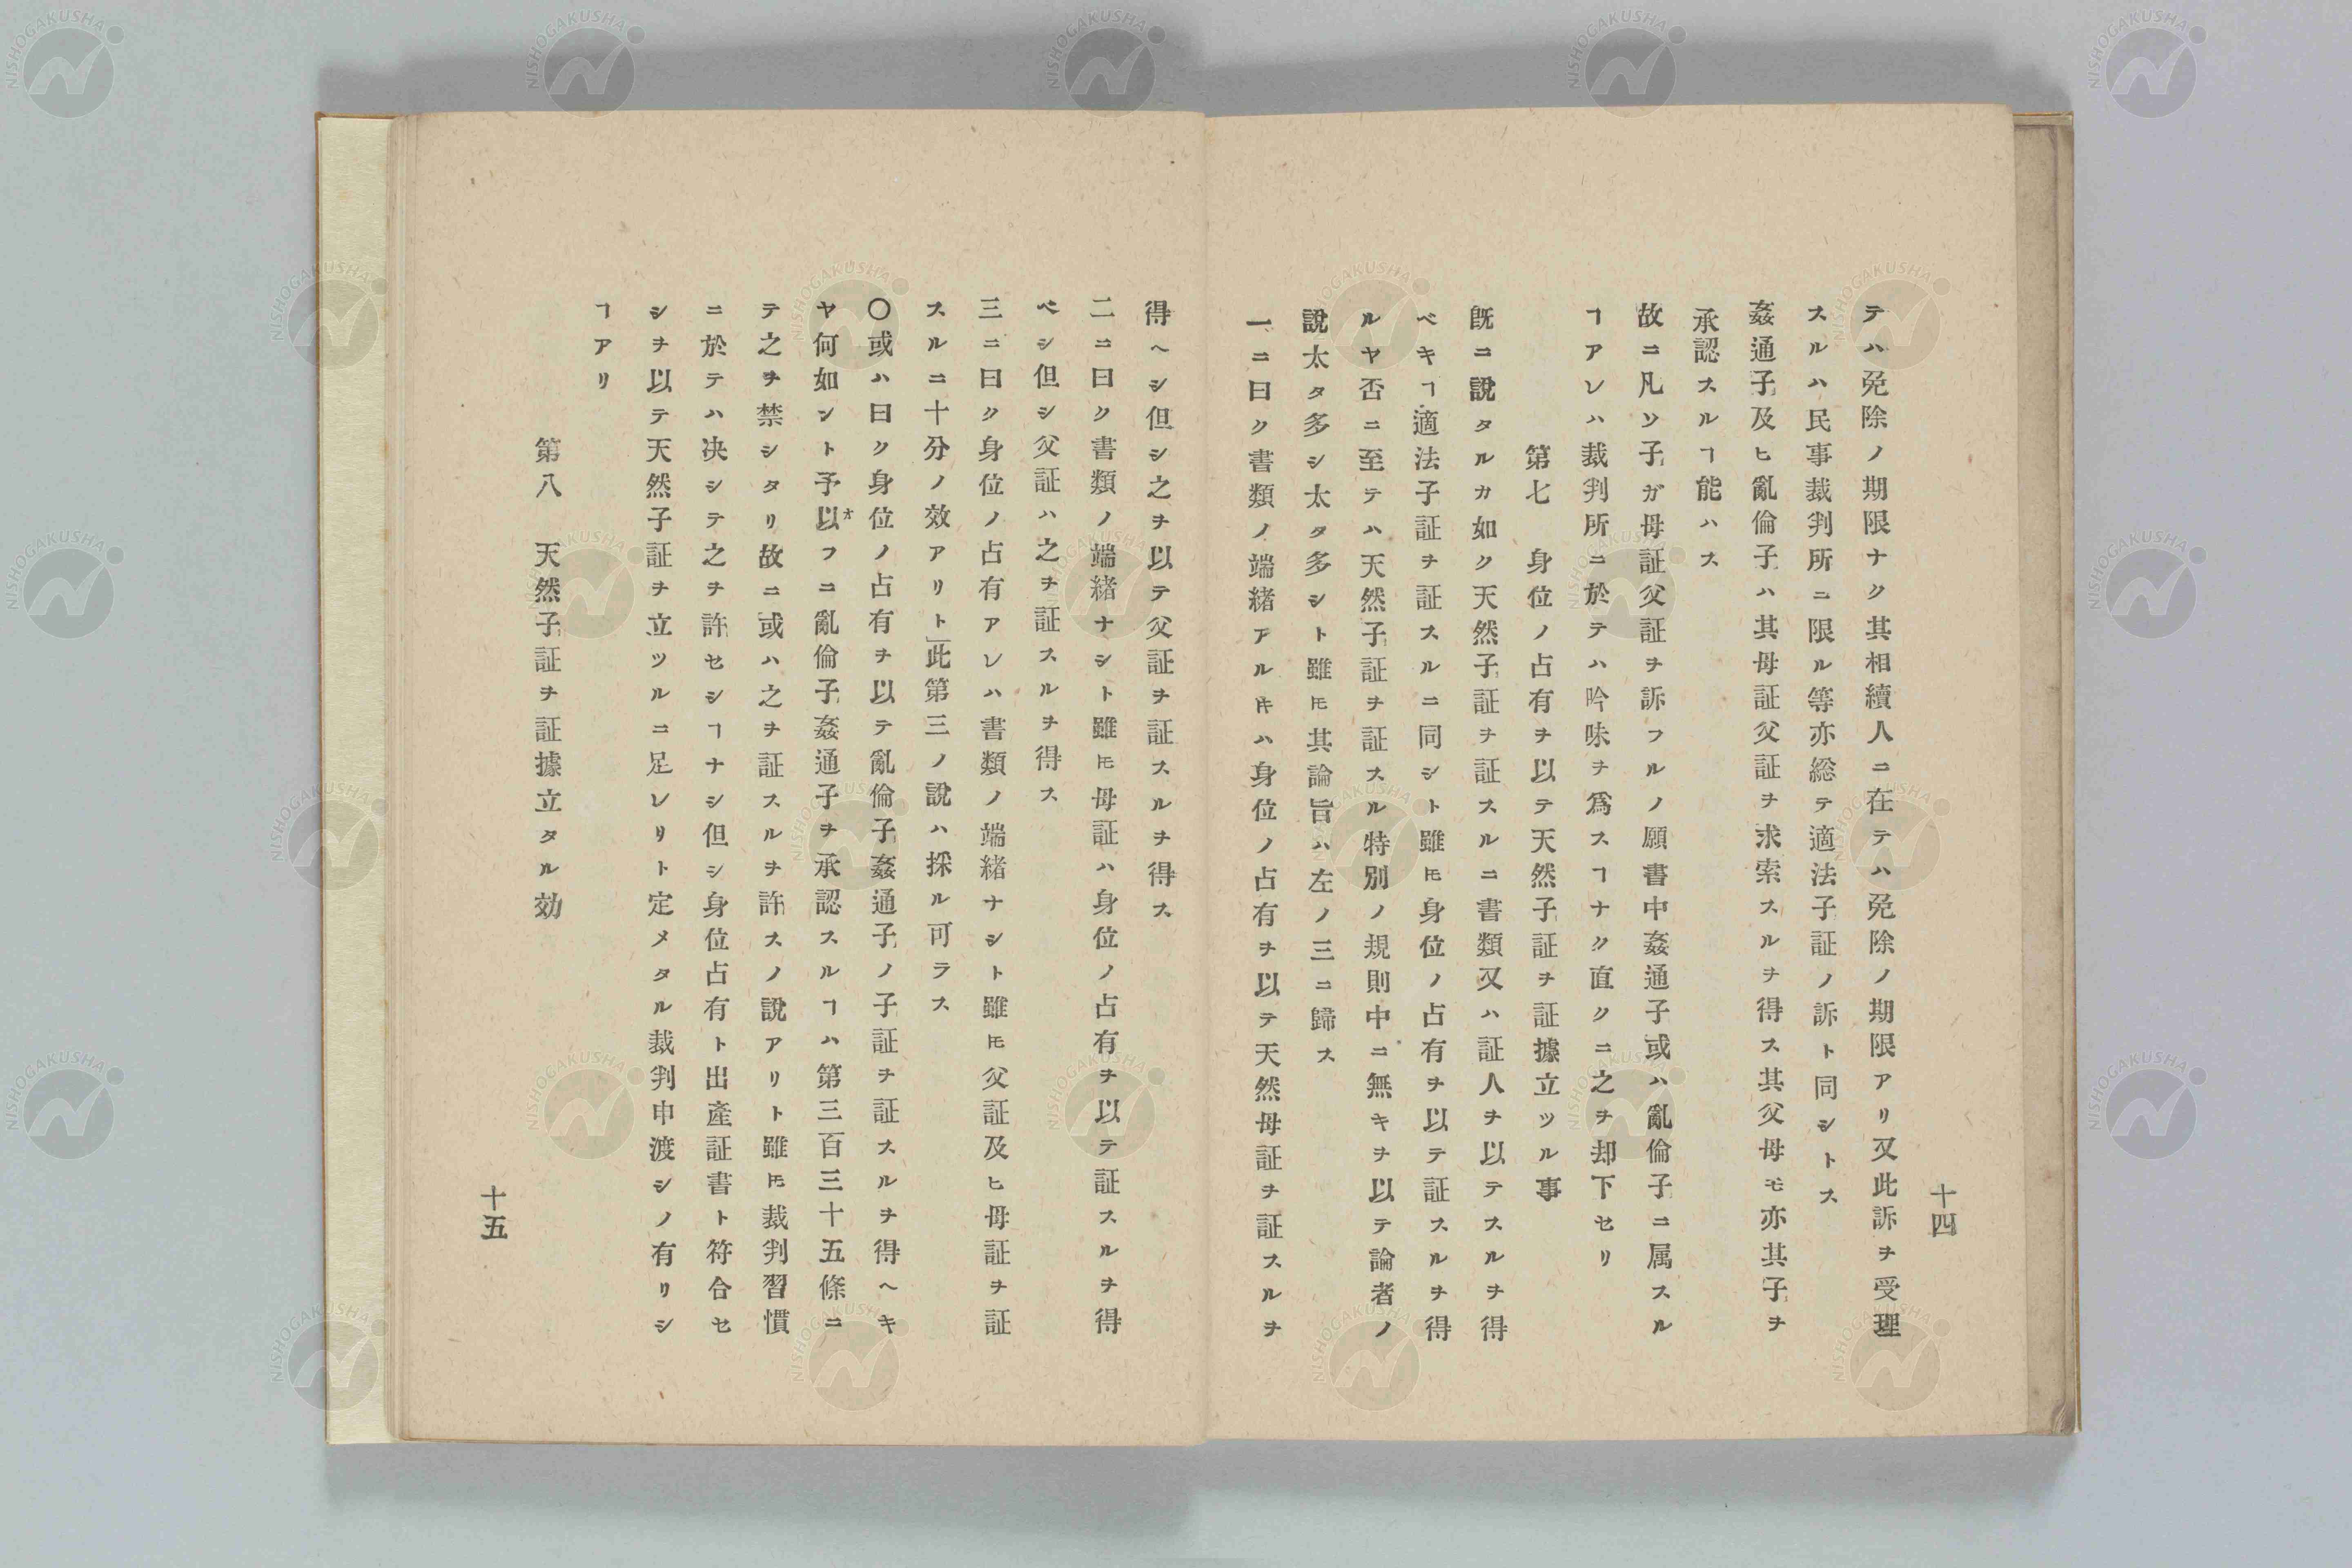 十四
テハ免除ノ期限ナク其相續人ニ在テハ免除ノ期限アリ又此訴ヲ受理
スルハ民事裁判所ニ限ル等亦総テ適法子証ノ訴ト同シトス
姦通子及ヒ亂倫子ハ其母証父証ヲ求索スルヲ得ス其父母モ亦其子ヲ
承認スルヿ能ハス
故ニ凡ソ子ガ母証父証ヲ訴フルノ願書中姦通子或ハ亂倫子ニ属スル
ヿアレハ裁判所ニ於テハ吟味ヲ爲スヿナク直クニ之ヲ却下セリ
第七 身位ノ占有ヲ以テ天然子証ヲ証據立ツル事
既ニ說タルカ如ク天然子証ヲ証スルニ書類又ハ証人ヲ以テスルヲ得
ベキヿ適法子証ヲ証スルニ同シト雖𪜈身位ノ占有ヲ以テ証スルヲ得
ルヤ否ニ至テハ天然子証ヲ証スル特別ノ規則中ニ無キヲ以テ論者ノ
說太タ多シ太タ多シト雖𪜈其論旨ハ左ノ三ニ歸ス
一ニ曰ク書類ノ端緒アルキハ身位ノ占有ヲ以テ天然母証ヲ証スルヲ
得ヘシ但シ之ヲ以テ父証ヲ証スルヲ得ス
二ニ曰ク書類ノ端緒ナシト雖𪜈母証ハ身位ノ占有ヲ以テ証スルヲ得
ベシ但シ父証ハ之ヲ証スルヲ得ス
三ニ曰ク身位ノ占有アレハ書類ノ端緒ナシト雖𪜈父証及ヒ母証ヲ証
スルニ十分ノ效アリト」此第三ノ說ハ採ル可ラス
〇或ハ曰ク身位ノ占有ヲ以テ亂倫子姦通子ノ子証ヲ証スルヲ得ヘキ
ヤ何如ント予以オフニ亂倫子姦通子ヲ承認スルヿハ第三百三十五條ニ
テ之ヲ禁シタリ故ニ或ハ之ヲ証スルヲ許スノ說アリト雖𪜈裁判習慣
ニ於テハ决シテ之ヲ許セシヿナシ但シ身位占有ト出產証書ト符合セ
シヲ以テ天然子証ヲ立ツルニ足レリト定メタル裁判申渡シノ有リシ
ヿアリ
第八 天然子証ヲ証據立タル効
十五
NISHOGAKUSHA